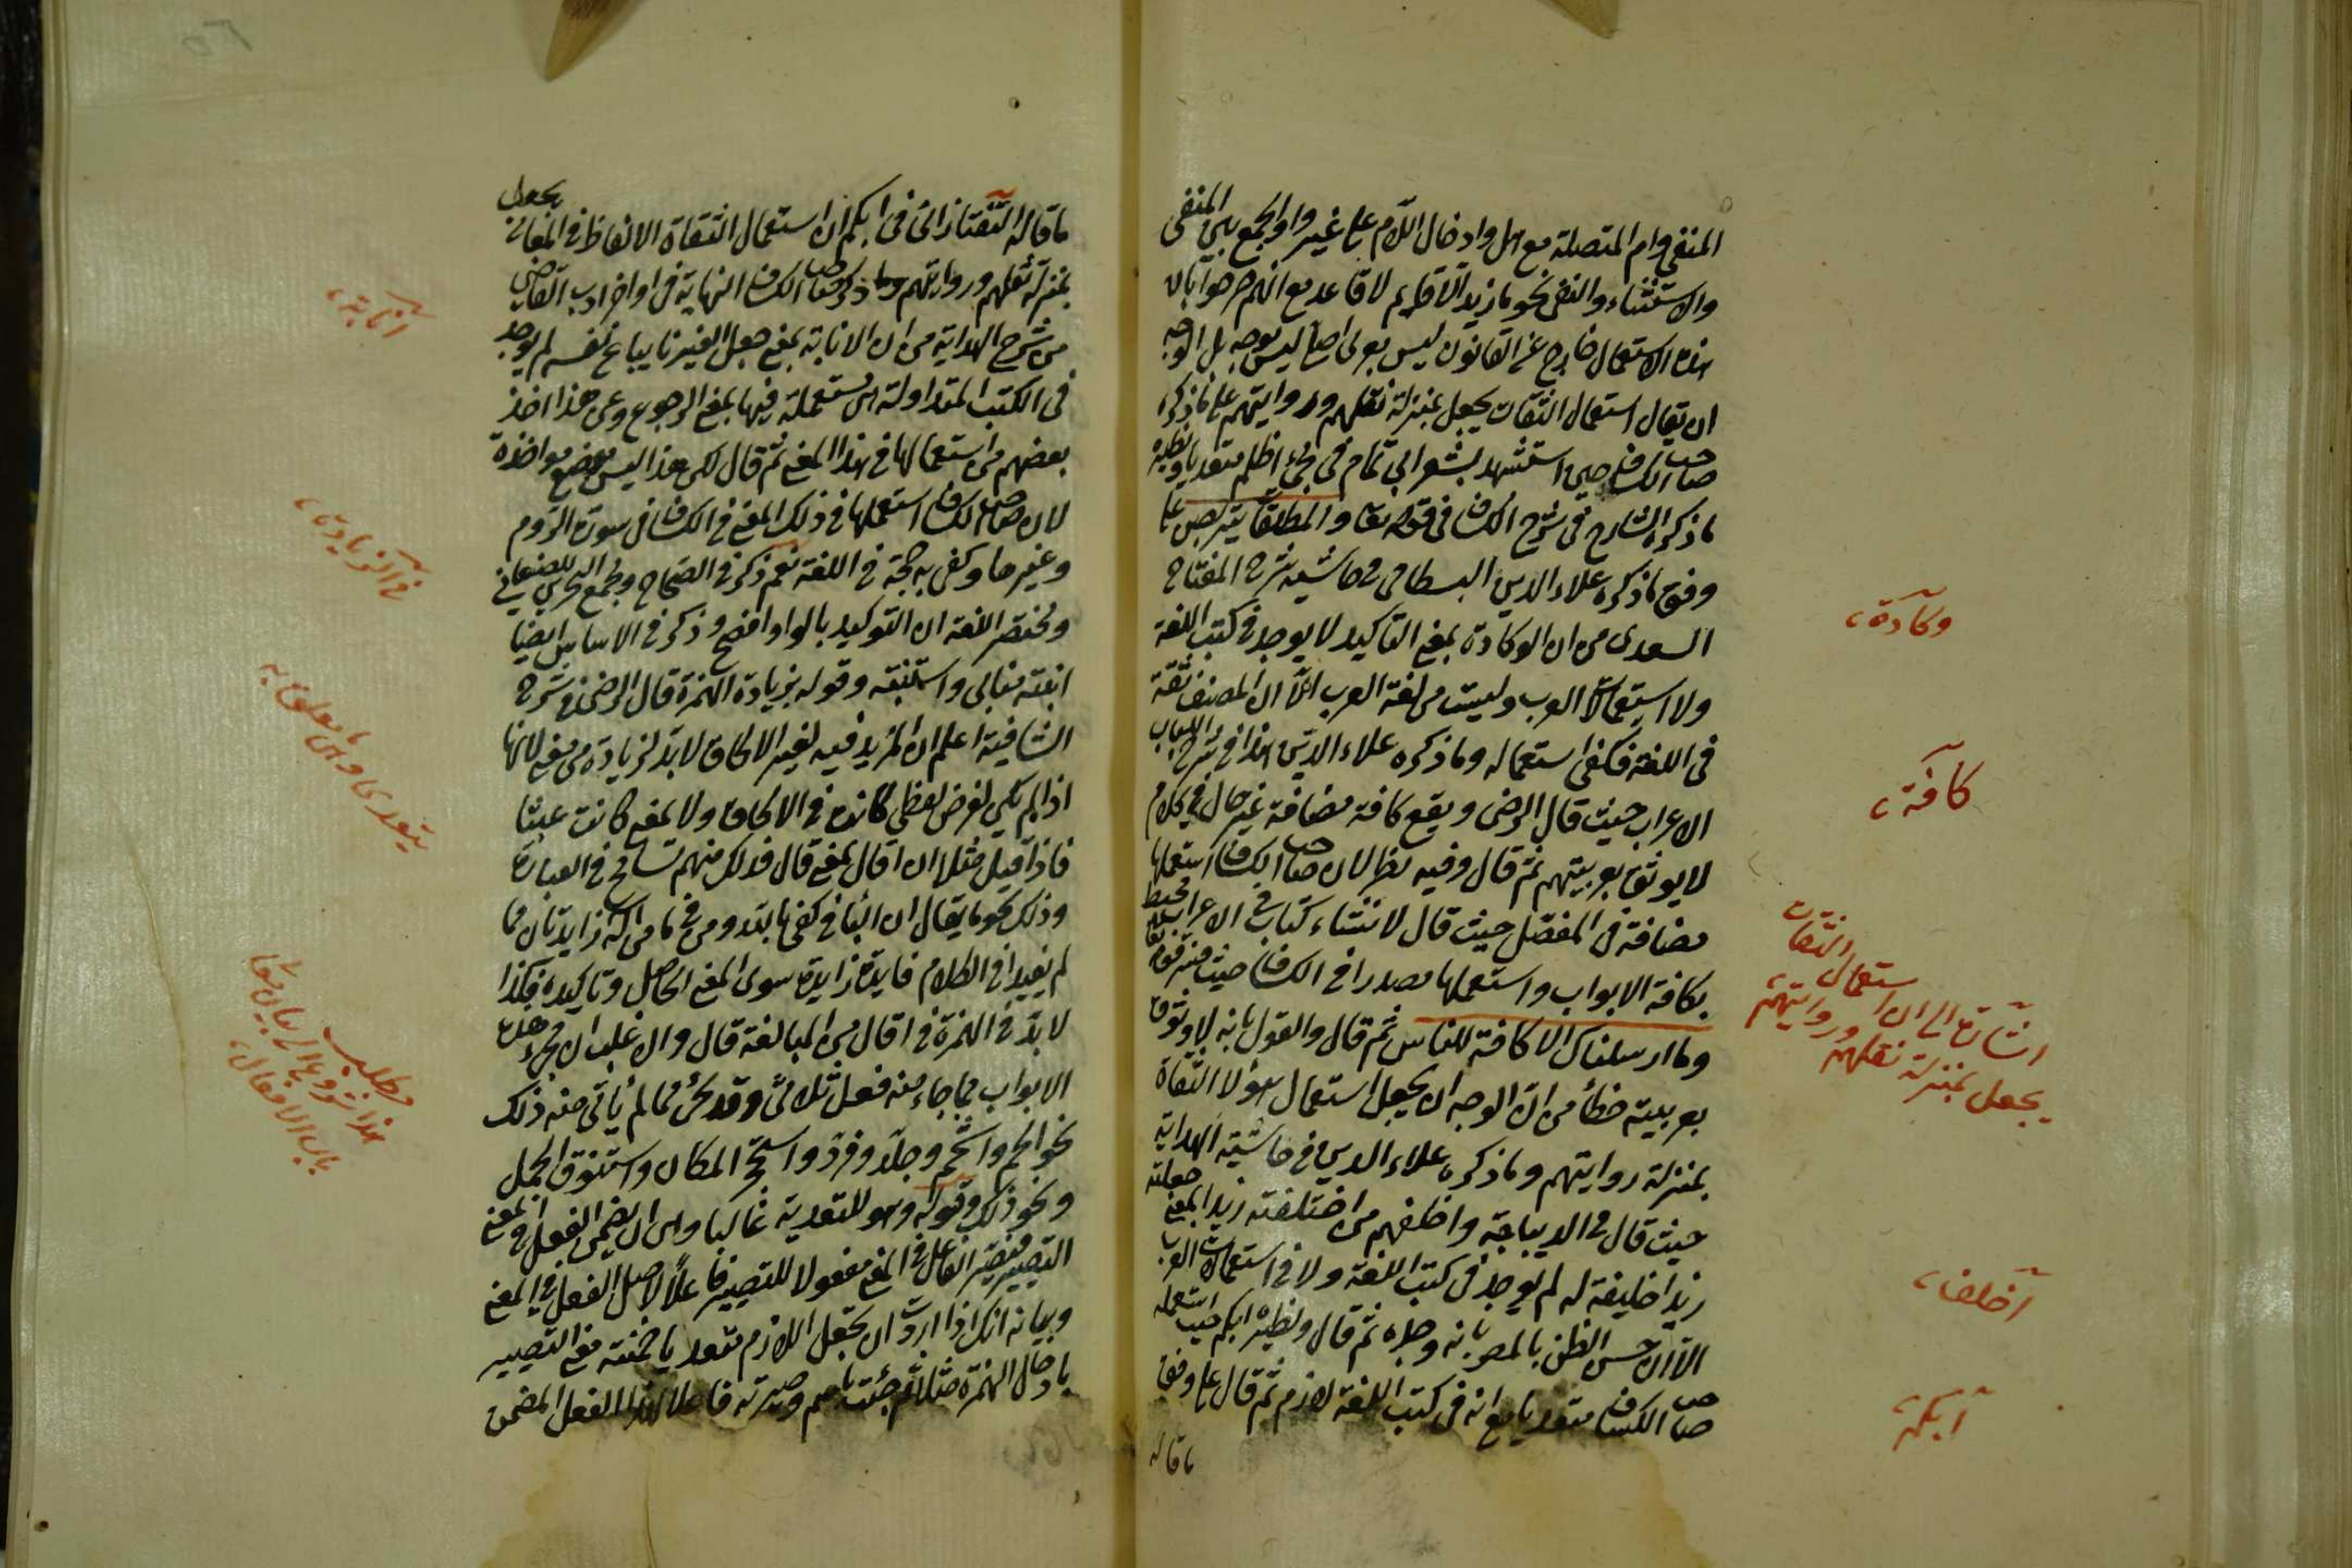 المنفي وام المتصلة مع هل وادخال اللام على غير واو الجمع بين المنفي
والاستثناء والنفي نحو ما زيد الا قايم لا قاعد مع انهم صرحوا بان
هذه الاستعمال خارج عن القانون ليس بعربى اصلا ليس بوجه بل الوجه
ان يقال استعمال الثقات يجعل بمنزلة نقلهم وروايتهم على ما ذكره
صاحب الكشاف حين استشهد بشعر ابى تمام فى مجئ اظلم متعديا ونظيره
ما ذكره الشارح فى شرح الكشاف فى قوله تعا والمطلقات يتربصن على
وفق ما ذكره علاء الدين البسطامى فى حاشية شرح المفتاح
السعدى من ان الوكادة بمعنى التاكيد لا يوجد فى كتب اللغة
ولا استعمالات العرب وليست من لغة العرب الا ان المصنف ثقة
فى اللغة فكفى استعماله وما ذكره علاء الدين هذا فى شرح اللباب
الاعراب حيث قال الرضى ويقع كافة مضافة غير حال فى كلام
لا يوثق بعربيتهم ثم قال وفيه نظر لان صاحب الكشاف استعملها
مضافة فى المفصل حيث قال لانشاء كتاب فى الاعراب محيط
بكافة الابواب واستعملها مصدرا فى الكشاف حيث فسر قوله تعا
وما ارسلناك الا كافة للناس ثم قال والقول بانه لا وثوق
بعربيته خطأ من ان الوجه ان يجعل استعمال هؤلاء الثقاة
بمنزلة روايتهم وما ذكره علاء الدين فى حاشية الهداية
حيث قال فى الديباجة واخلفهم من اختلفته زيدا بمعنى جعلته
زيدا خليفة له لم يوجد فى كتب اللغة ولا فى استعمالات العرب
الا ان حسن الظن بالمص بانه وجده ثم قال ونظيره ابكم حيث استعمله
صاحب الكشاف متعديا مع انه فى كتب اللغة لازم ثم قال على وفق
ما قاله
وكادة،
كافة،
اشارة الى ان استعمال الثقات
يجعل بمنزلة نقلهم وروايتهم،
اخلف،
ابكم،
ما قاله التفتازانى فى ابكم ان استعمال الثقاة الالفاظ فى المعانى يجعل
بمنزلة نقلهم وروايتهم وما ذكره صاحب الكشاف النهاية فى اواخر ادب القاضى
من شرح الهداية من ان الانابة بمعنى جعل الغير نايبا عن نفسه لم يوجد
فى الكتب المتداولة بل مستعملة فيها بمعنى الرجوع وعن هذا اخذ
بعضهم من استعمالها فى هذا المعنى ثم قال لكن هذا ليس موضع مواخذة
لان صاحب الكشاف استعملها فى ذلك المعنى فى الكشاف فى سورة الروم
وغيرها وكفى به حجة فى اللغة نعم ذكر فى الصحاح ومجمع البحرين للصنعانى
ومختصر اللغة ان التوكيد بالواو افصح وذكر فى الاساس ايضا
انبته منابى واستنبته وقوله بزيادة الهمزة قال الرضى فى شرح
الشافية اعلم ان المزيد فيه لغير الالحاق لا بد لزيادة من معنى لانها
اذا لم تكن لغرض لفظى كما كانت فى الالحاق ولا لمعنى كانت عبثا
فاذا قيل مثلا ان اقال بمعنى قال فذلك منهم تسامح فى العبارة
وذلك نحو ما يقال ان الباء فى كفى بالله ومن فى ما من اله زايدتان لما
لم يفيدا فى الكلام فايدة زايدة سوى المعنى الحاصل وتاكيده فكذا
لا بد فى الهمزة فى اقال من المبالغة قال والاغلب ان تجئ هذه
الابواب مما جاء منه فعل ثلاثى وقد تجئ مما لم يأتى منه ذلك
نحو الجم واشحم وجلد وفرد واستحجر المكان واستنوق الجمل
ونحو ذلك قوله وهو للتعدية غالبا وهى ان يضمن الفعل فى المعنى
التصيير فيصير الفاعل فى المعنى مفعولا للتصيير فاعلا لاصل الفعل فى المعنى
وبيانه انك اذا اردت ان تجعل اللازم متعديا ضمنته معنى التصيير
بادخال الهمزة مثلا ثم جئت باسم وصيرته فاعلا لهذا الفعل المضمن
انابة،
يتعدى
مطلب
باب الافعال،